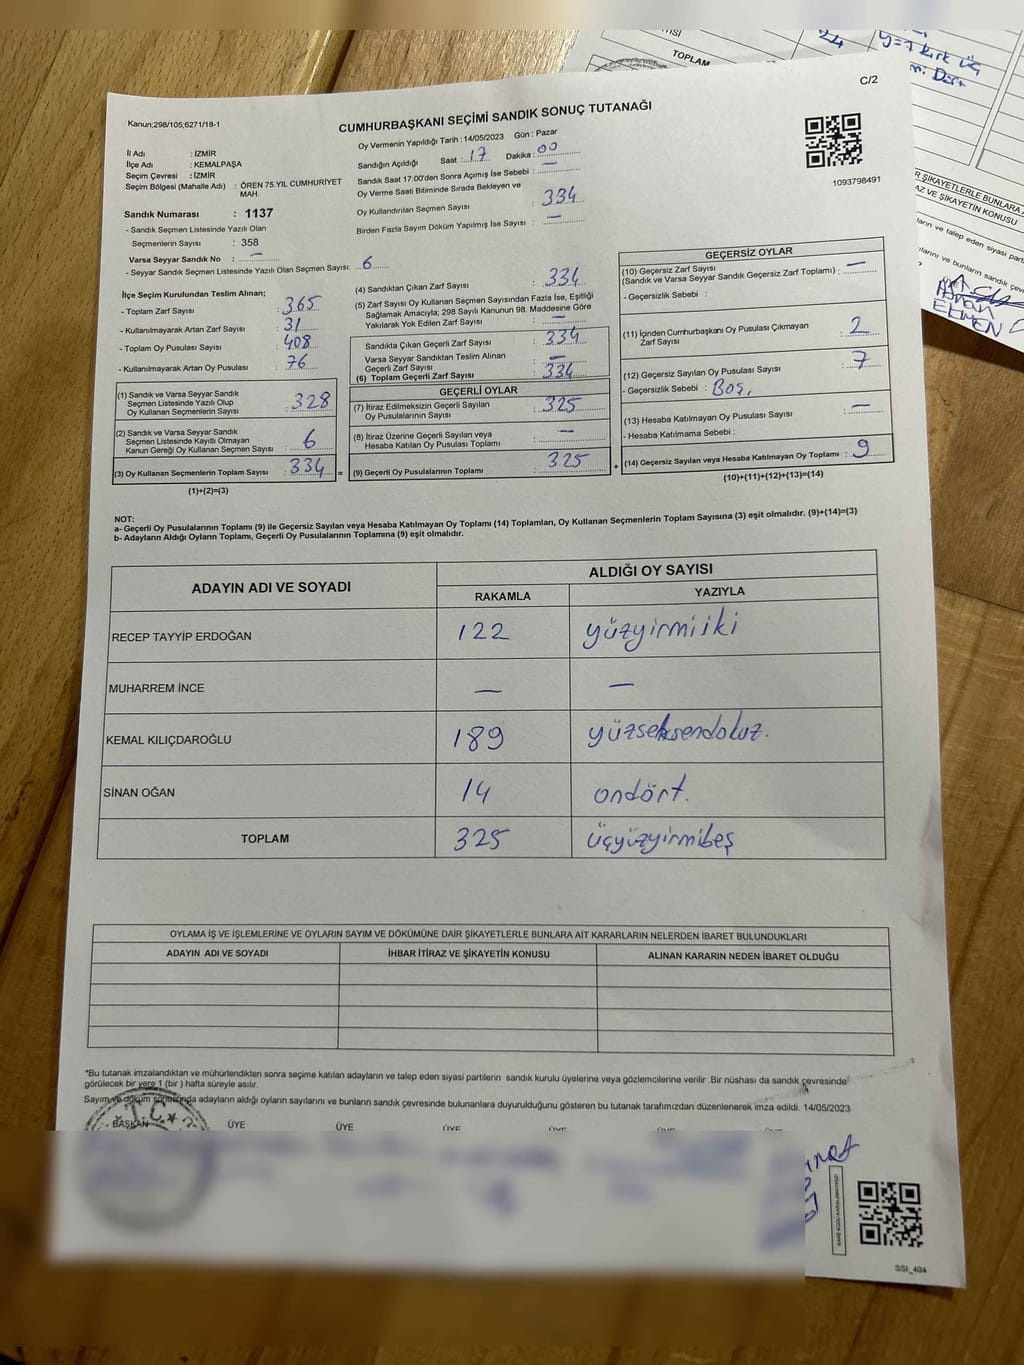 C/2
Kanun;298/105;6271/18-1
CUMHURBAŞKANI SEÇİMİ SANDIK SONUÇ TUTANAĞI
İl Adı : İZMİR
İlçe Adı : KEMALPAŞA
Seçim Çevresi : İZMİR
Seçim Bölgesi (Mahalle Adı) : ÖREN 75.YIL CUMHURİYET
MAH.
Sandık Numarası : 1137
- Sandık Seçmen Listesinde Yazılı Olan
Seçmenlerin Sayısı : 358
Varsa Seyyar Sandık No : —
- Seyyar Sandık Seçmen Listesinde Yazılı Olan Seçmen Sayısı: 6
Oy Vermenin Yapıldığı Tarih : 14/05/2023 Gün : Pazar
Sandığın Açıldığı Saat : 17 Dakika : 00
Sandık Saat 17:00'den Sonra Açımış İse Sebebi : —
Oy Verme Saati Bitiminde Sırada Bekleyen ve
Oy Kullandırılan Seçmen Sayısı : 334
Birden Fazla Sayım Döküm Yapılmış İse Sayısı : —
1093798491
İlçe Seçim Kurulundan Teslim Alınan;
- Toplam Zarf Sayısı : 365
- Kullanılmayarak Artan Zarf Sayısı : 31
- Toplam Oy Pusulası Sayısı : 408
- Kullanılmayarak Artan Oy Pusulası : 76
(1) Sandık ve Varsa Seyyar Sandık
Seçmen Listesinde Yazılı Olup
Oy Kullanan Seçmenlerin Sayısı : 328
(2) Sandık ve Varsa Seyyar Sandık
Seçmen Listesinde Kayıtlı Olmayan
Kanun Gereği Oy Kullanan Seçmen Sayısı : 6
(3) Oy Kullanan Seçmenlerin Toplam Sayısı : 334 =
(1)+(2)=(3)
(4) Sandıktan Çıkan Zarf Sayısı : 334
(5) Zarf Sayısı Oy Kullanan Seçmen Sayısından Fazla İse, Eşitliği
Sağlamak Amacıyla; 298 Sayılı Kanunun 98. Maddesine Göre
Yakılarak Yok Edilen Zarf Sayısı : —
Sandıkta Çıkan Geçerli Zarf Sayısı : 334
Varsa Seyyar Sandıktan Teslim Alınan
Geçerli Zarf Sayısı : —
(6) Toplam Geçerli Zarf Sayısı : 334
GEÇERLİ OYLAR
(7) İtiraz Edilmeksizin Geçerli Sayılan
Oy Pusulalarının Sayısı : 325
(8) İtiraz Üzerine Geçerli Sayılan veya
Hesaba Katılan Oy Pusulası Toplamı : —
(9) Geçerli Oy Pusulalarının Toplamı : 325 +
GEÇERSİZ OYLAR
(10) Geçersiz Zarf Sayısı
(Sandık ve Varsa Seyyar Sandık Geçersiz Zarf Toplamı) : —
- Geçersizlik Sebebi :
(11) İçinden Cumhurbaşkanı Oy Pusulası Çıkmayan
Zarf Sayısı : 2
(12) Geçersiz Sayılan Oy Pusulası Sayısı : 7
- Geçersizlik Sebebi : Boş,
(13) Hesaba Katılmayan Oy Pusulası Sayısı : —
- Hesaba Katılmama Sebebi :
(14) Geçersiz Sayılan veya Hesaba Katılmayan Oy Toplamı : 9
(10)+(11)+(12)+(13)=(14)
NOT:
a- Geçerli Oy Pusulalarının Toplamı (9) ile Geçersiz Sayılan veya Hesaba Katılmayan Oy Toplamı (14) Toplamları, Oy Kullanan Seçmenlerin Toplam Sayısına (3) eşit olmalıdır. (9)+(14)=(3)
b- Adayların Aldığı Oyların Toplamı, Geçerli Oy Pusulalarının Toplamına (9) eşit olmalıdır.
ADAYIN ADI VE SOYADI ALDIĞI OY SAYISI
RAKAMLA YAZIYLA
RECEP TAYYİP ERDOĞAN 122 yüzyirmiiki
MUHARREM İNCE — —
KEMAL KILIÇDAROĞLU 189 yüzseksendokuz.
SİNAN OĞAN 14 ondört.
TOPLAM 325 üçyüzyirmibeş
OYLAMA İŞ VE İŞLEMLERİNE VE OYLARIN SAYIM VE DÖKÜMÜNE DAİR ŞİKAYETLERLE BUNLARA AİT KARARLARIN NELERDEN İBARET BULUNDUKLARI
ADAYIN ADI VE SOYADI İHBAR İTİRAZ VE ŞİKAYETİN KONUSU ALINAN KARARIN NEDEN İBARET OLDUĞU
*Bu tutanak imzalandıktan ve mühürlendikten sonra seçime katılan adayların ve talep eden siyasi partilerin sandık kurulu üyelerine veya gözlemcilerine verilir .Bir nüshası da sandık çevresinde
görülecek bir yere 1 (bir ) hafta süreyle asılır.
Sayım ve döküm sonucunda adayların aldığı oyların sayılarını ve bunların sandık çevresinde bulunanlara duyurulduğunu gösteren bu tutanak tarafımızdan düzenlenerek imza edildi. 14/05/2023
BAŞKAN ÜYE ÜYE ÜYE ÜYE ÜYE ÜYE
T.C.
SSI_404
TOPLAM
24
y=7 kırk üç